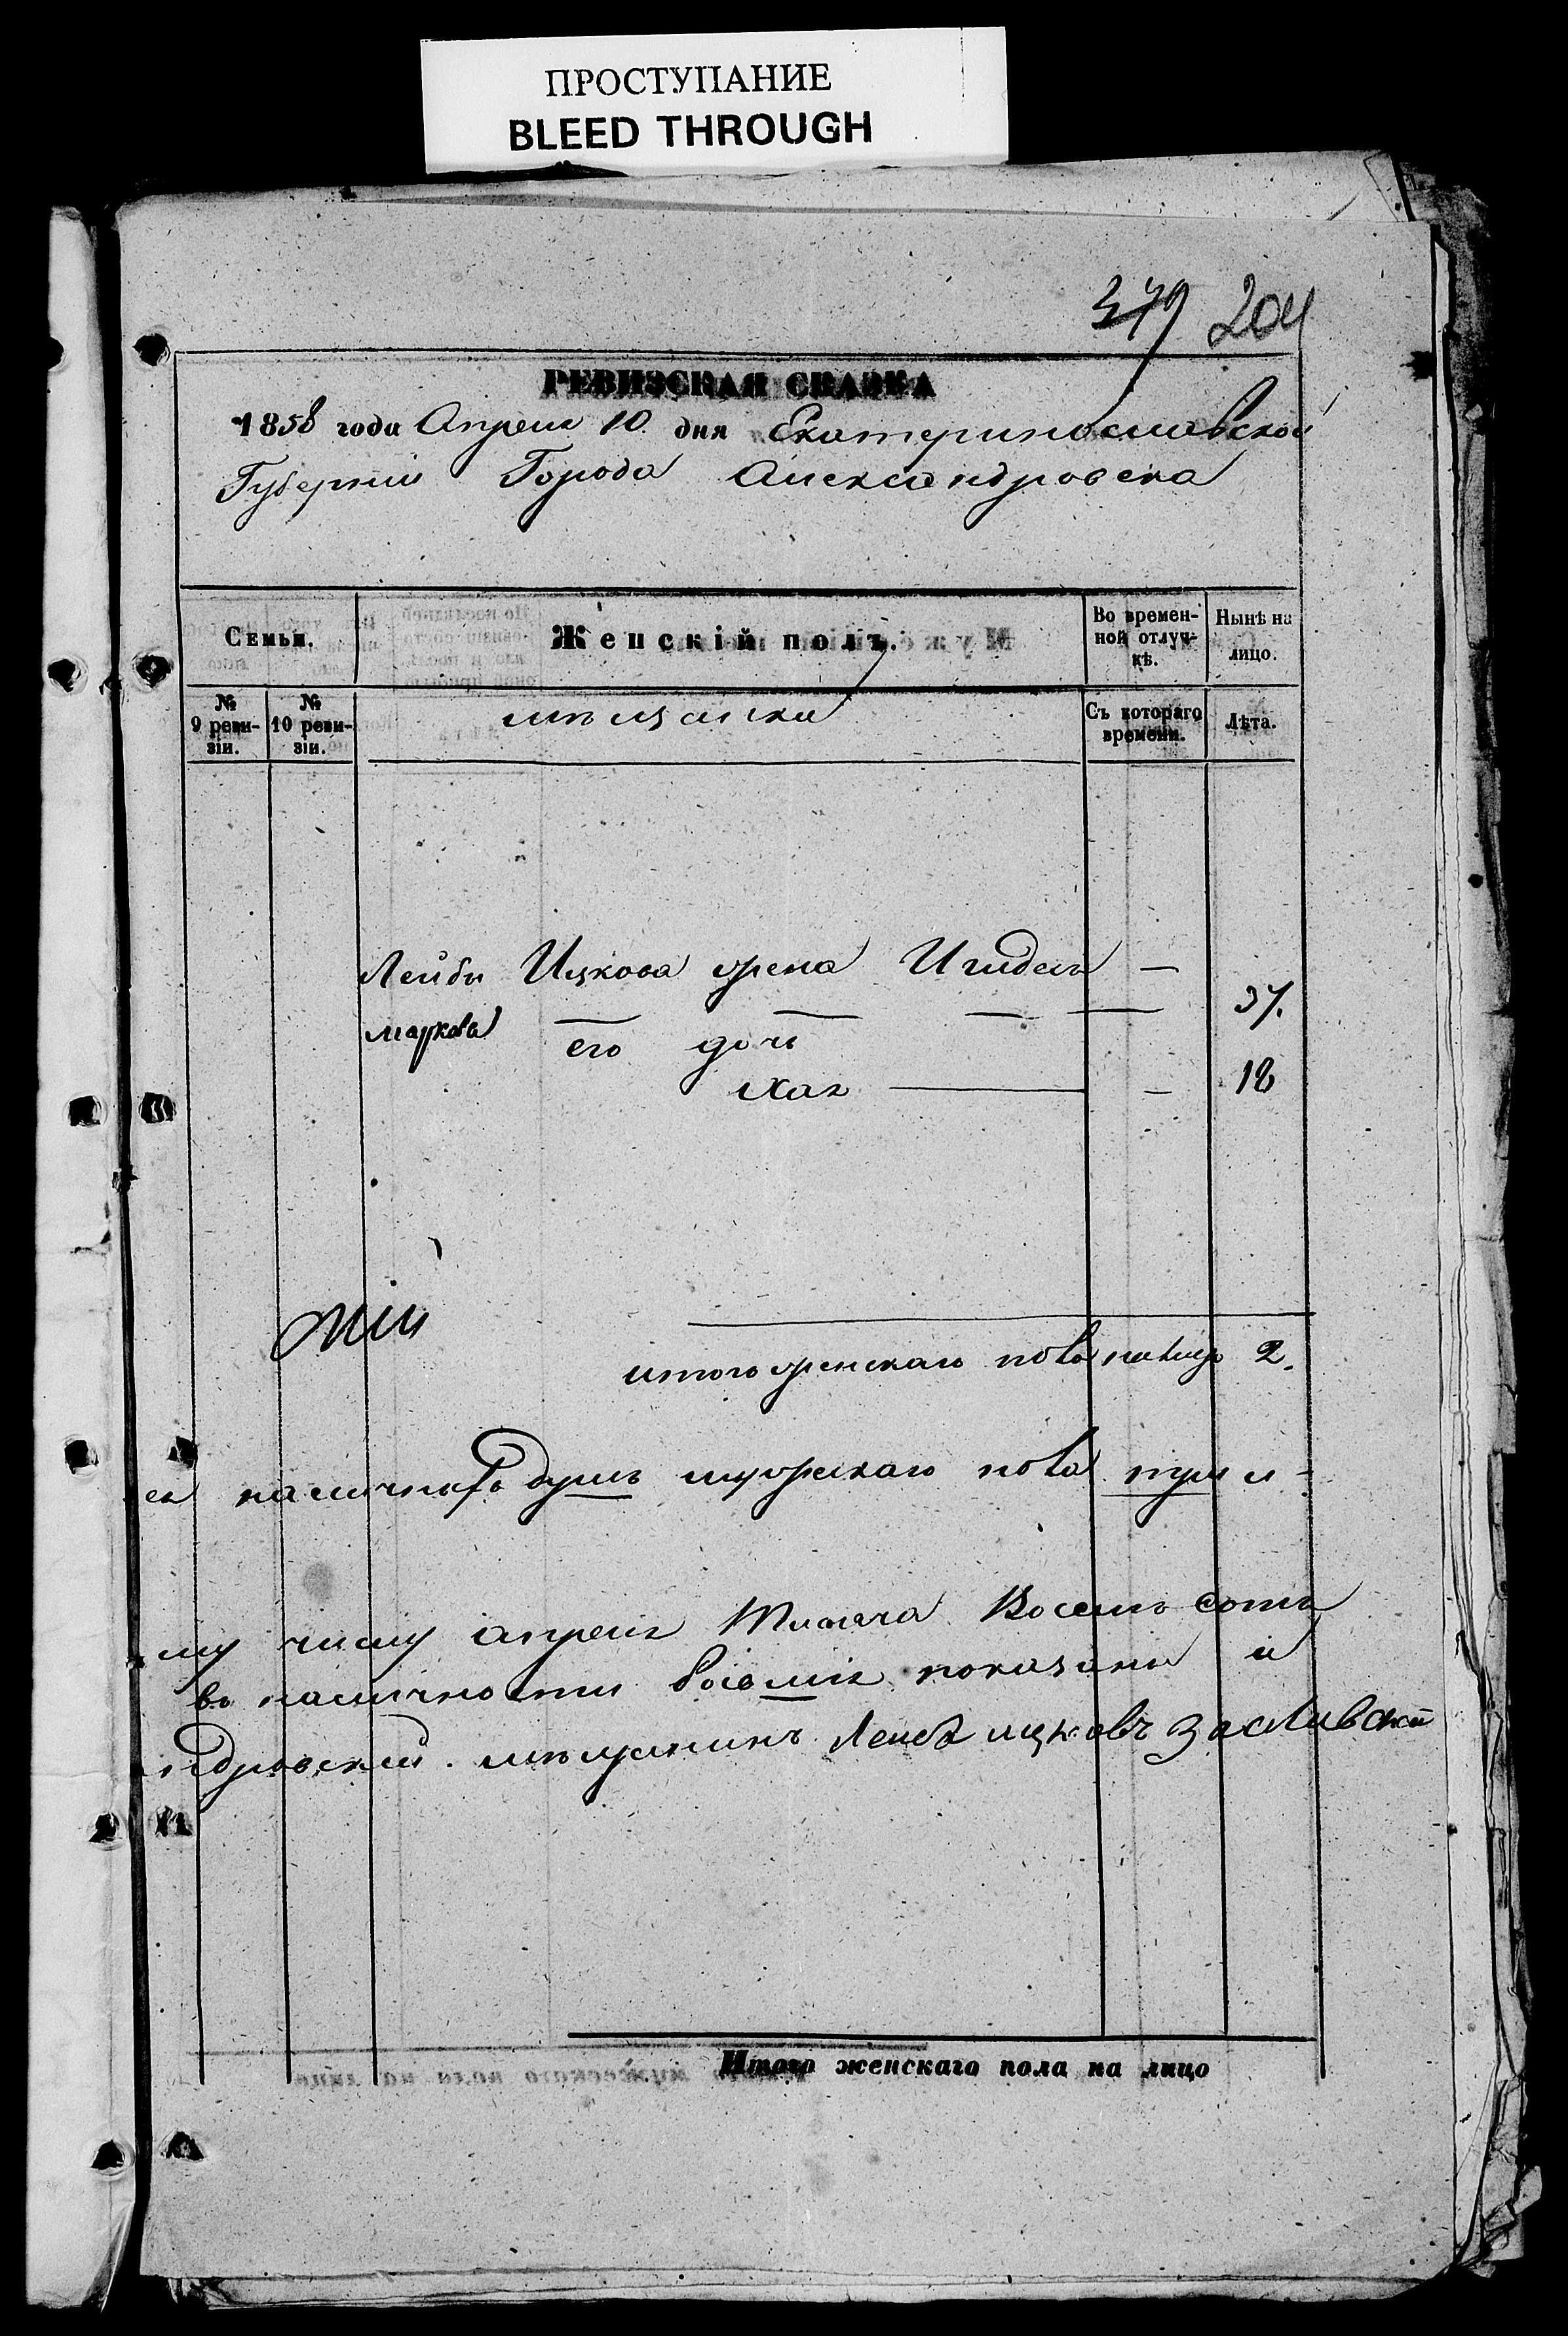 ПРОСТУПАНИЕ
BLEED THROUGH
379 204
РЕВИЗСКАЯ СКАЗКА
1858 года Апреля 10 дня Екатеринославской
Губернии Города Александровска
Семьи. Женскій полъ. Во времен-ной отлуч-кѣ. Нынѣ на лицо.
№ 9 реви-зіи. № 10 реви-зіи. мѣщанка Съ котораго времени. Лѣта.
Лейбы Ицкова жена —
Маркова — — — — 37.
его дочь
Хая — — 18
итого женскаго пола налицо 2.
наличныхъ душъ мужескаго пола три и
му числу апреля Тысяча Восемь сотъ
въ наличности восемь показаны и
ндровскій мѣщанинъ Лейба Ицковъ Заславскій
Итого женскаго пола на лицо